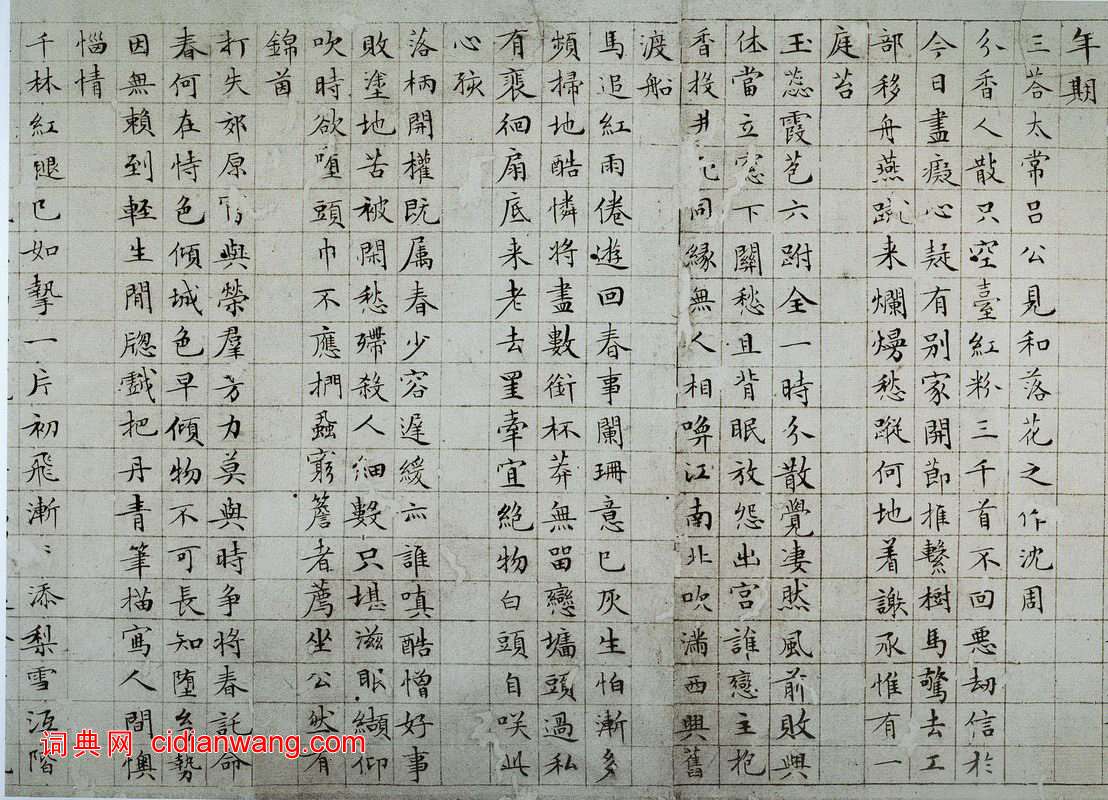 年期
三荅太常吕公見和落花之作沈周
分香人散只空臺紅粉三千首不回悪劫信於
今日盡癡心疑有别家開節推繫樹馬驚去工
部移舟燕蹴来爛熳愁蹤何地着謝承惟有一
庭苔
玉蕊霞苞六跗全一時分散覺凄然風前敗興
休當立窓下關愁且背眠放怨出宮誰戀主抱
香投井死同縁無人相喚江南北吹滿西興舊
渡船
馬追紅雨倦遊回春事闌珊意已灰生怕漸多
頻掃地酷憐將盡數銜杯莽無留戀墻頭過私
有裵徊扇底来老去罣牽宜絶物白頭自咲此
心孩
落柄開權既属春少容遅緩亦誰嗔酷憎好事
敗塗地苦被閑愁殢殺人細數只堪滋眼纈仰
吹時欲堕頭巾不應捫蝨窮簷者薦坐公然有
錦茵
打失郊原富與榮羣芳力莫與時爭將春託命
春何在恃色傾城色早傾物不可長知堕勢
因無賴到輕生閒牕戱把丹青筆描寫人間懊
惱情
千林紅褪已如一片初飛漸〻添梨雪沍階
词典网 cidianwang.com